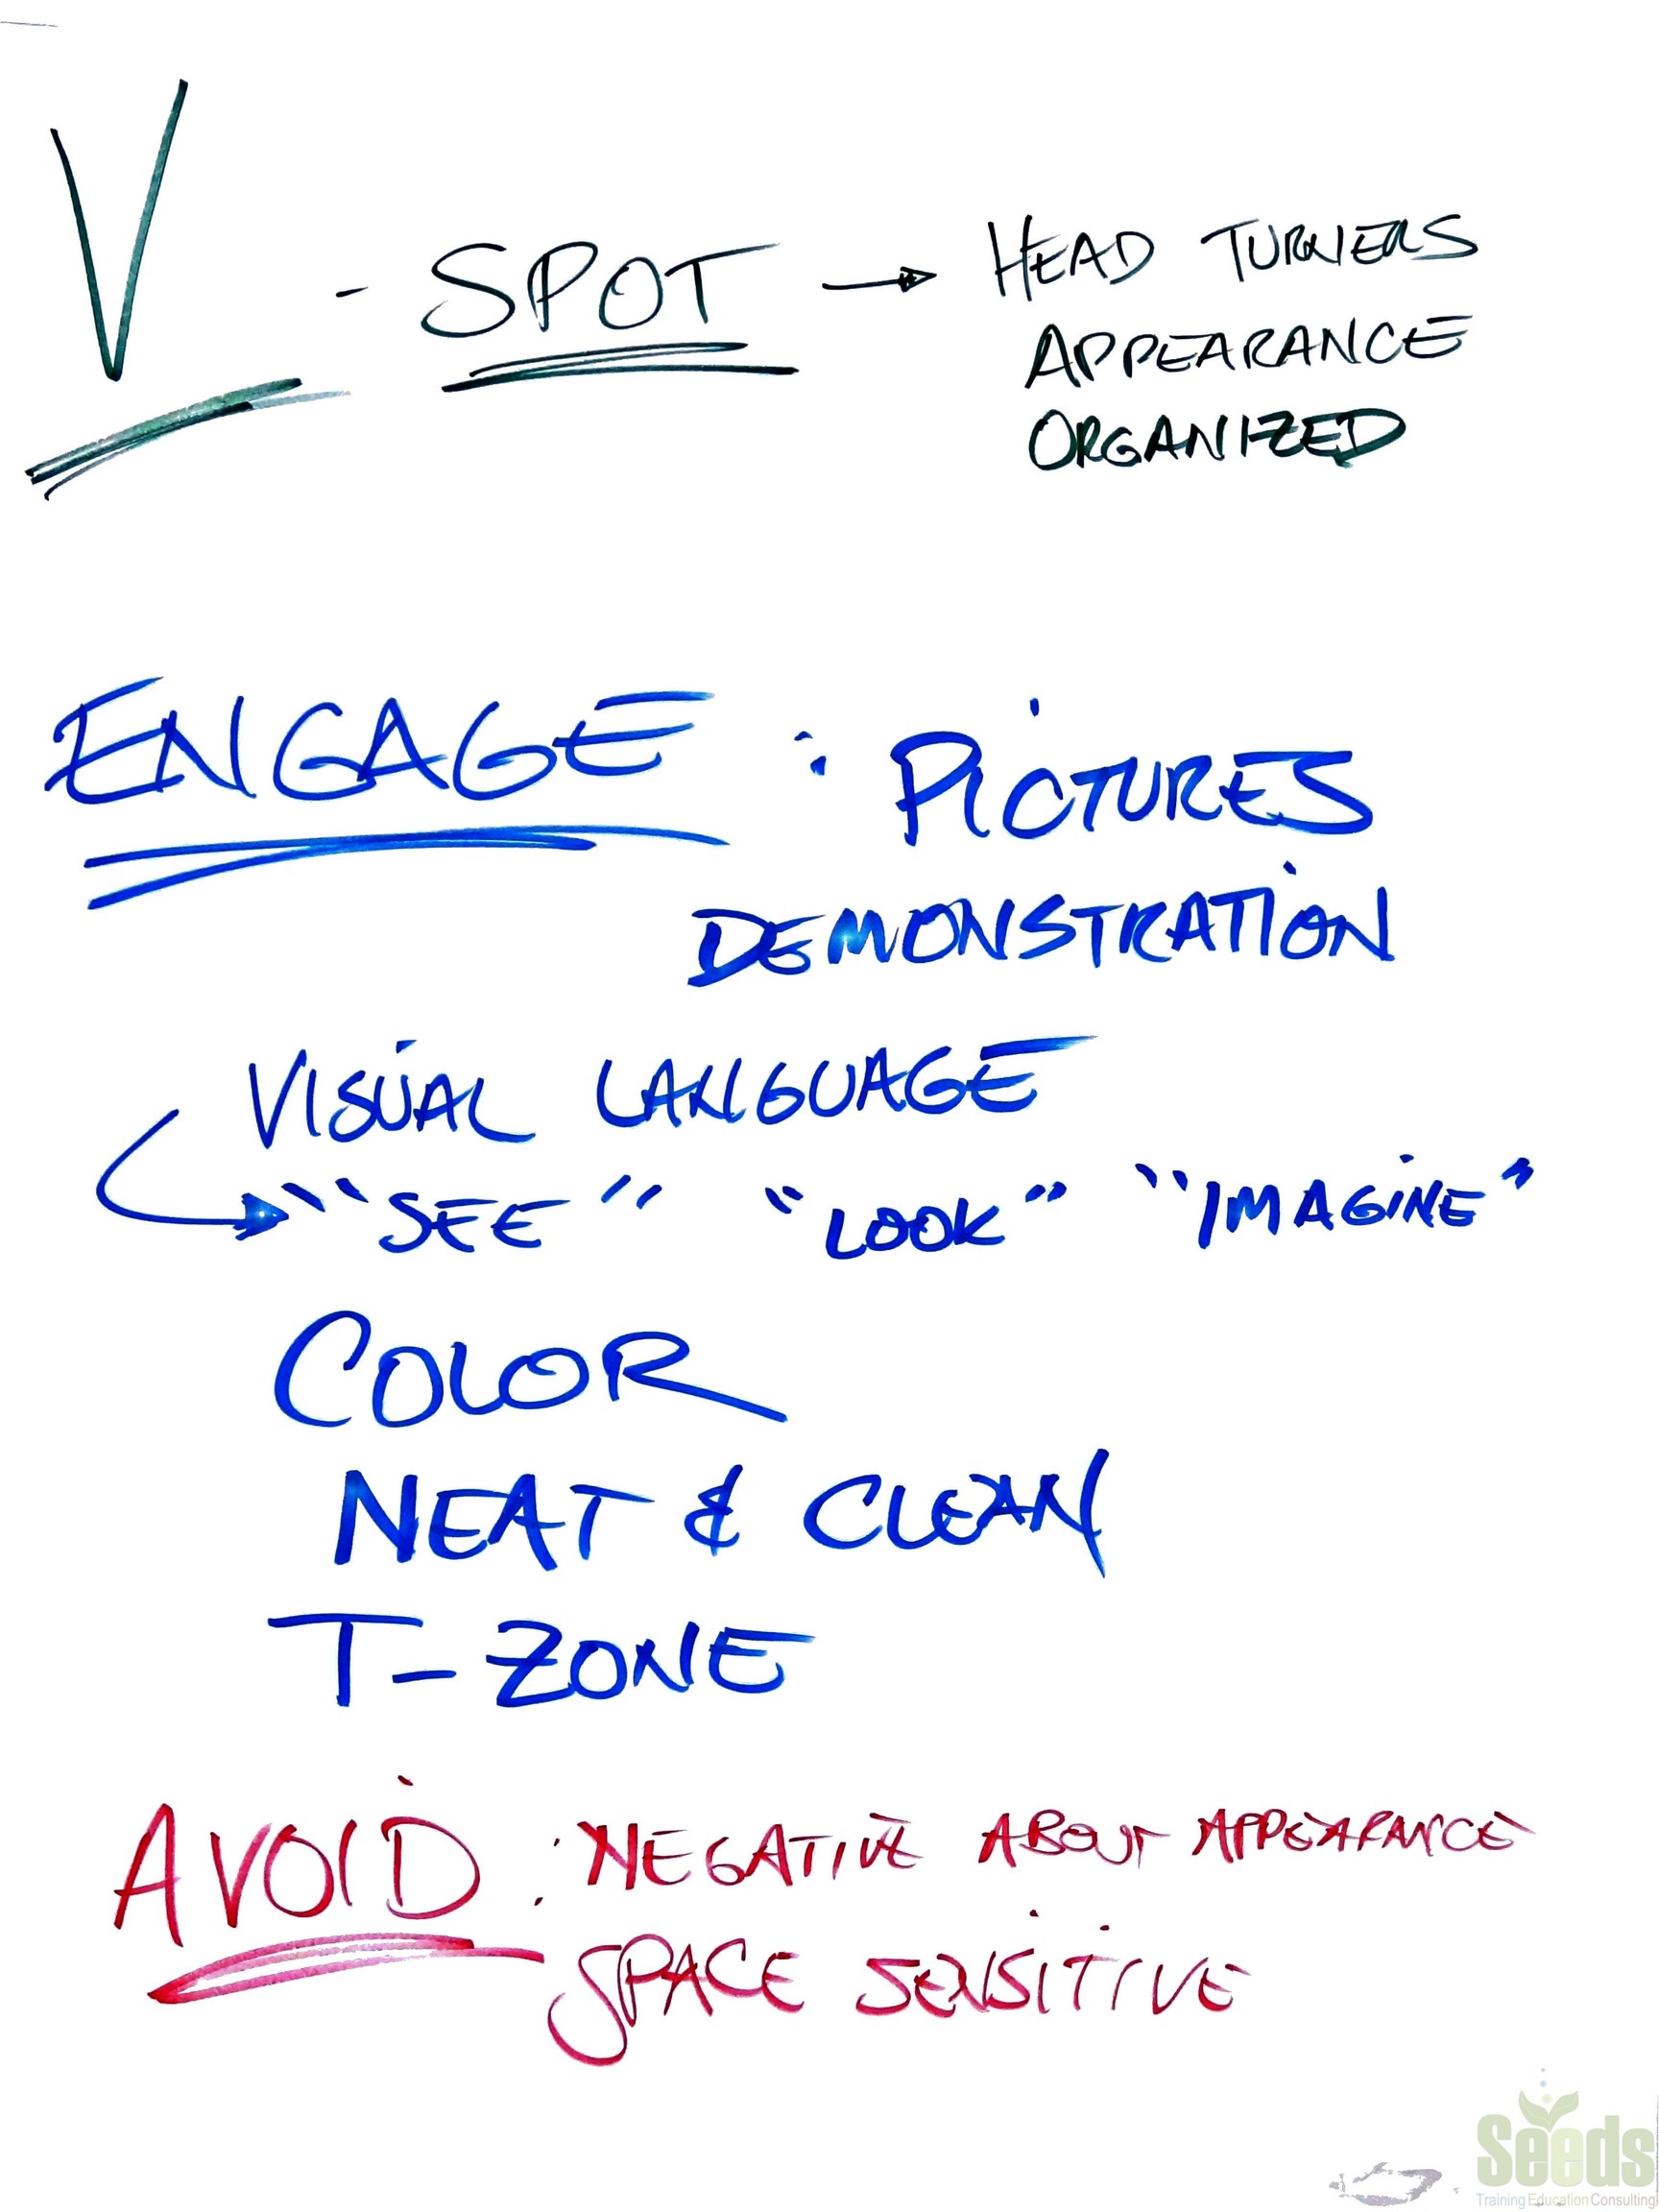 V - SPOT → HEAD TURNERS
APPEARANCE
ORGANIZED
ENGAGE : PICTURES
DEMONSTRATION
VISUAL LANGUAGE
"SEE" "LOOK" "IMAGINE"
COLOR
NEAT & CLEAN
T-ZONE
AVOID : NEGATIVE ABOUT APPEARANCE
SPACE SENSITIVE
Seeds
Training Education Consulting